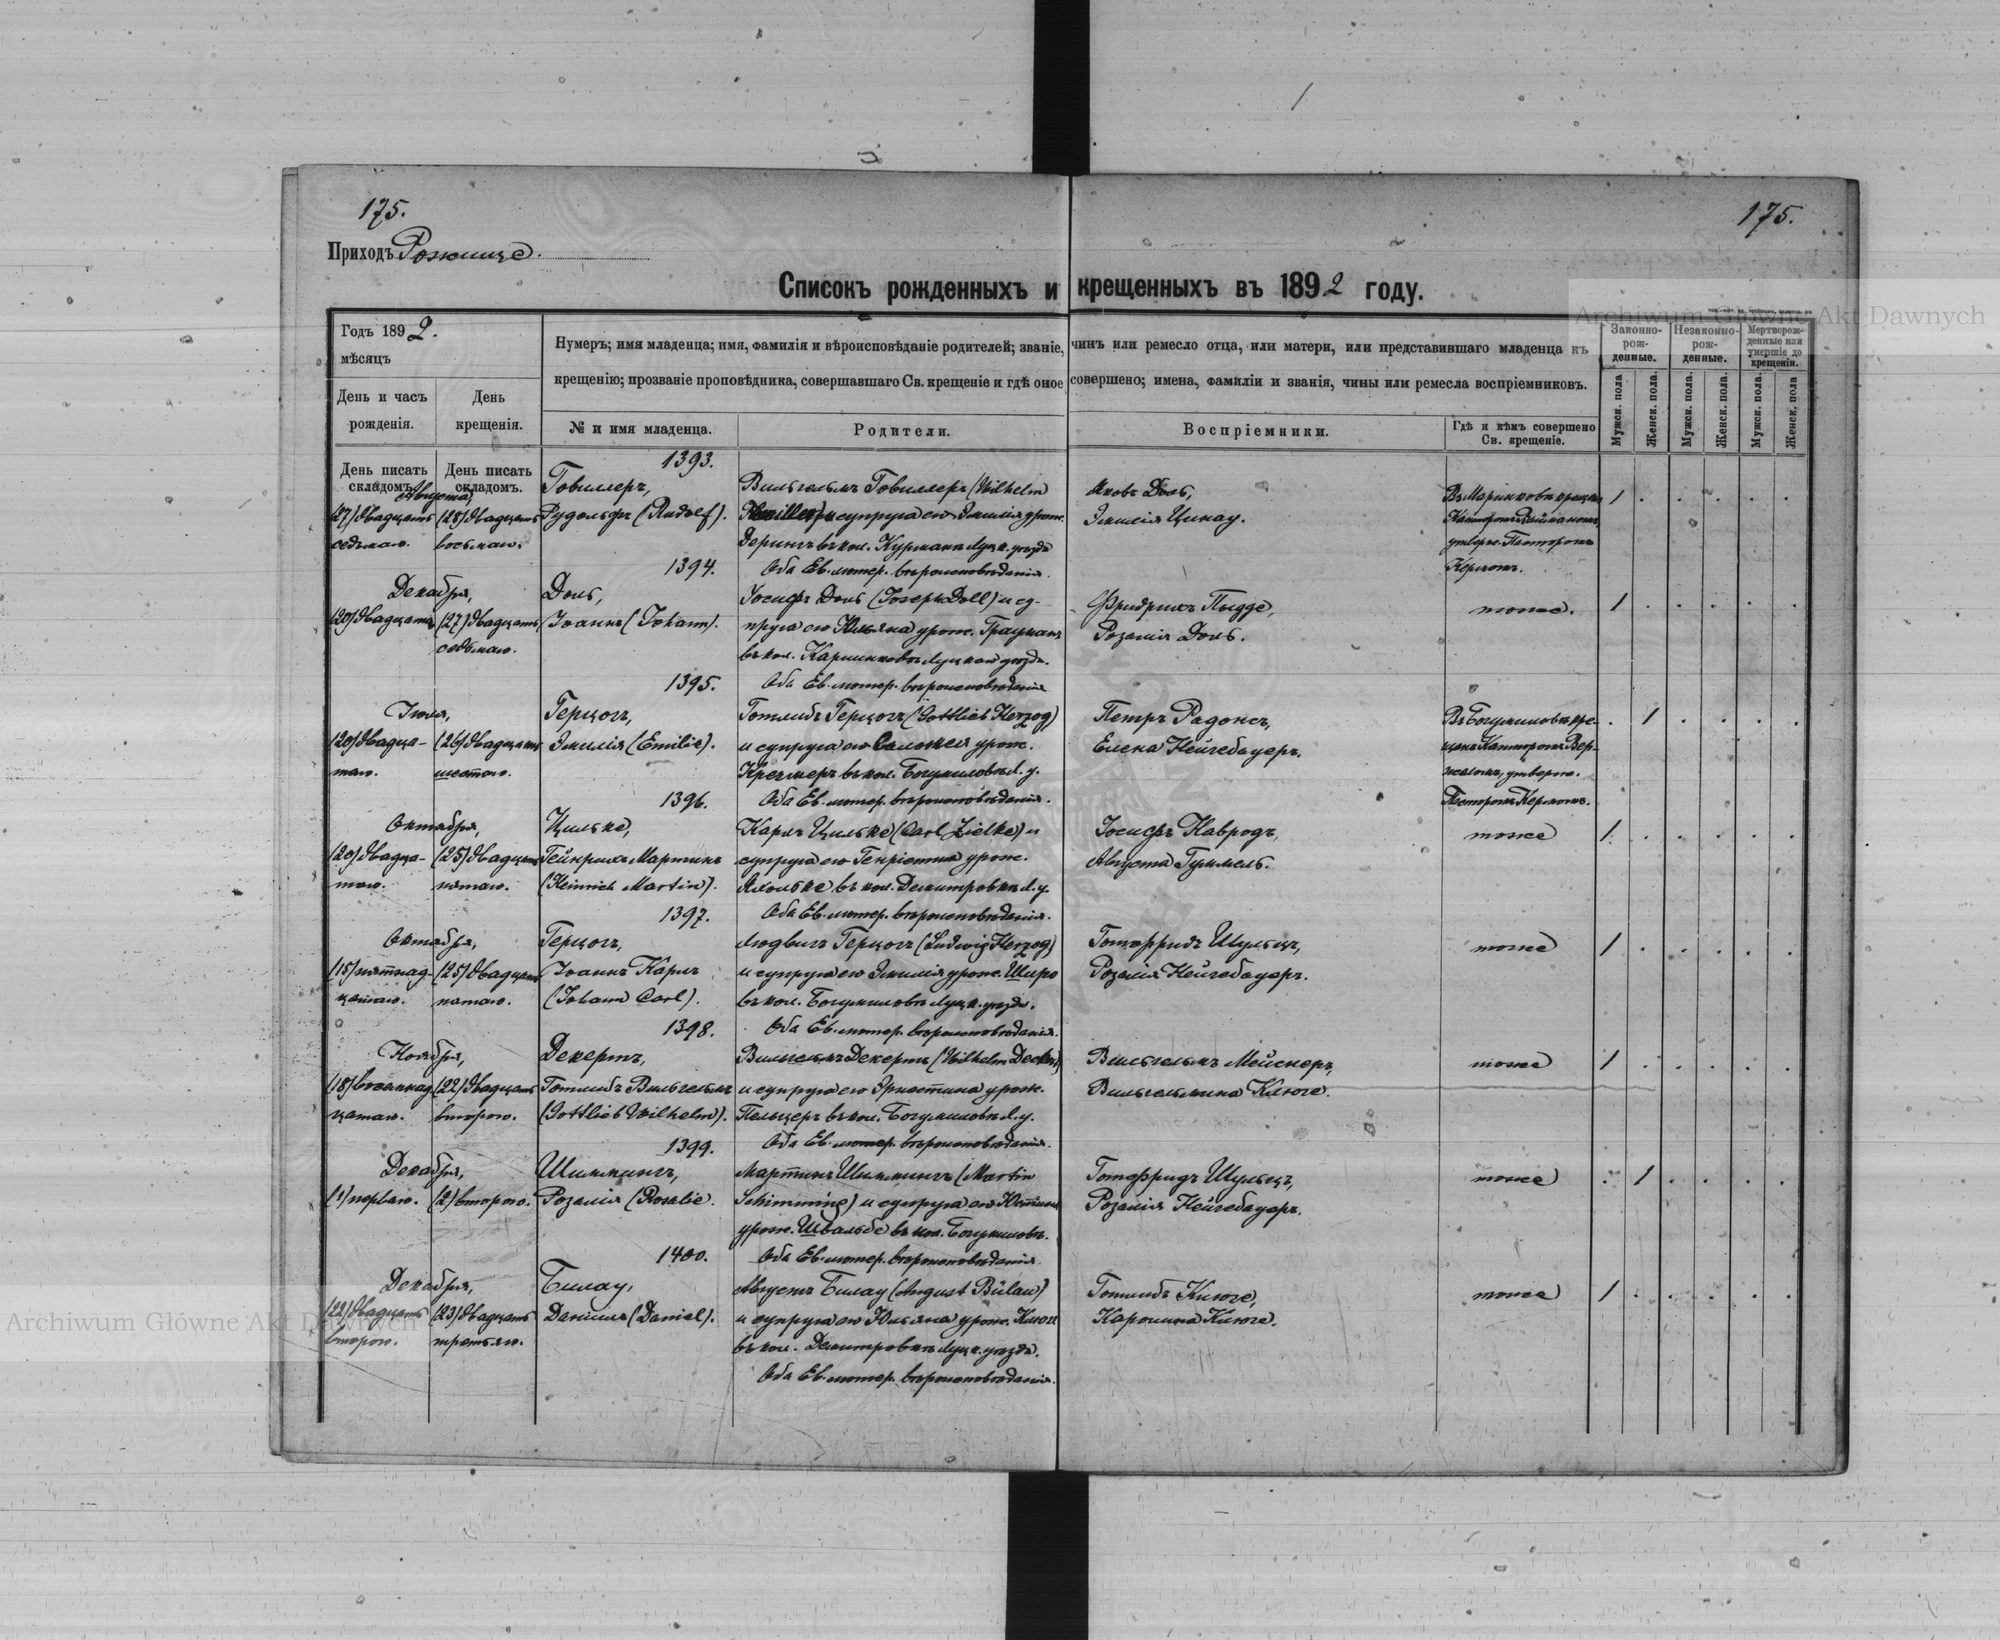 175.
175.
Приходъ Рожище.
Списокъ рожденныхъ и крещенныхъ въ 1892 году.
Годъ 1892.
мѣсяцъ
День и часъ рожденія.
День крещенія.
Нумеръ; имя младенца; имя, фамилія и вѣроисповѣданіе родителей; званіе, чинъ или ремесло отца, или матери, или представившаго младенца къ
крещенію; прозваніе проповѣдника, совершавшаго Св. крещеніе и гдѣ оное совершено; имена, фамиліи и званія, чины или ремесла воспріемниковъ.
№ и имя младенца.
Родители.
Воспріемники.
Гдѣ и кѣмъ совершено Св. крещеніе.
Законно-рож-денные.
Незаконно-рож-денные.
Мертворож-денные или умершіе до крещенія.
Мужск. пола
Женск. пола.
Мужск. пола.
Женск. пола.
Мужск. пола.
Женск. пола
День писать складомъ.
День писать складомъ.
1393.
Августа,
(27) двадцать
седьмаго.
(28) двадцать
восьмаго.
Говиллеръ,
Рудольфъ (Rudolf).
Вильгельмъ Говиллеръ (Wilhelm
и супруга его Эмилія урож.
Дерингъ въ кол. Курманъ Луцк. уѣзда
Оба Ев. лютер. вѣроисповѣданія.
Яковъ Доль,
Эмилія Цинау.
утверж. Пасторомъ
Керномъ.
1
1394.
Декабря,
(20) двадцатаго
(27) двадцать
седьмаго.
Доль,
Іоаннъ (Johann).
Іосифъ Доль (Joseph Doll) и су-
пруга его Юльяна урож. Грауманъ
въ кол. Луцкаго уѣзда.
Оба Ев. лютер. вѣроисповѣданія
Фридрихъ Пыдде,
Розалія Доль.
тоже.
1
1395.
Іюля,
(20) двадца-
таго.
(26) двадцать
шестаго.
Герцогъ,
Эмилія (Emilie).
Готлибъ Герцогъ (Gottlieb Herzog)
и супруга его Саломея урож.
Кречмеръ въ кол. Богумиловкѣ Л. у.
Оба Ев. лютер. вѣроисповѣданія.
Петръ Радонсъ,
Елена Нейгебауеръ.
Въ Богумиловкѣ кре-
щенъ Канторомъ Вер-
утверж.
Пасторомъ Керномъ.
1
1396.
Октября,
(20) двадца-
таго.
(25) двадцать
пятаго.
Цильке,
Гейнрихъ Мартинъ
(Heinrich Martin).
Карлъ Цильке (Carl Zielke) и
супруга его Генріетта урож.
въ кол. Демитровкѣ Л. у.
Оба Ев. лютер. вѣроисповѣданія.
Іосифъ Навродъ,
Августа Гуммель.
тоже
1
1397.
Октября,
(15) пятнад-
цатаго.
(25) двадцать
пятаго.
Герцогъ,
Іоаннъ Карлъ
(Johann Carl).
Людвигъ Герцогъ (Ludwig Herzog)
и супруга его Эмилія урож. Широ
въ кол. Богумиловкѣ Луцк. уѣзда.
Оба Ев. лютер. вѣроисповѣданія.
Готфридъ Шульцъ,
Розалія Нейгебауеръ.
тоже
1
1398.
Ноября,
(18) восемнад
цатаго.
(22) двадцать
втораго.
Декертъ,
Готлибъ Вильгельмъ
(Gottlieb Wilhelm).
Вильгельмъ Декертъ (Wilhelm
и супруга его Эрнестина урож.
Пельцеръ въ кол. Богумиловкѣ Л. у.
Оба Ев. лютер. вѣроисповѣданія.
Вильгельмъ Мейснеръ,
Вильгельмина Клюге.
тоже
1
1399.
Декабря,
(1) перваго.
(2) втораго.
Шиммингъ,
Розалія (Rosalie.
Мартинъ Шиммингъ (Martin
Schimming) и супруга его Юстина
урож. Швальбе въ кол. Богумиловк.
Оба Ев. лютер. вѣроисповѣданія.
Готфридъ Шульцъ,
Розалія Нейгебауръ.
тоже
1
1400.
Декабря,
(22) двадцать
втораго.
(23) двадцать
третьяго.
Билау,
Даніилъ (Daniel).
Августъ Билау (August Bülau)
и супруга его Юльяна урож. Клюге
въ кол. Демитровкѣ Луцк. уѣзда.
Оба Ев. лютер. вѣроисповѣданія.
Готлибъ Клюге,
Каролина Клюге.
тоже
1
Archiwum Główne Akt Dawnych
Archiwum Główne Akt Dawnych